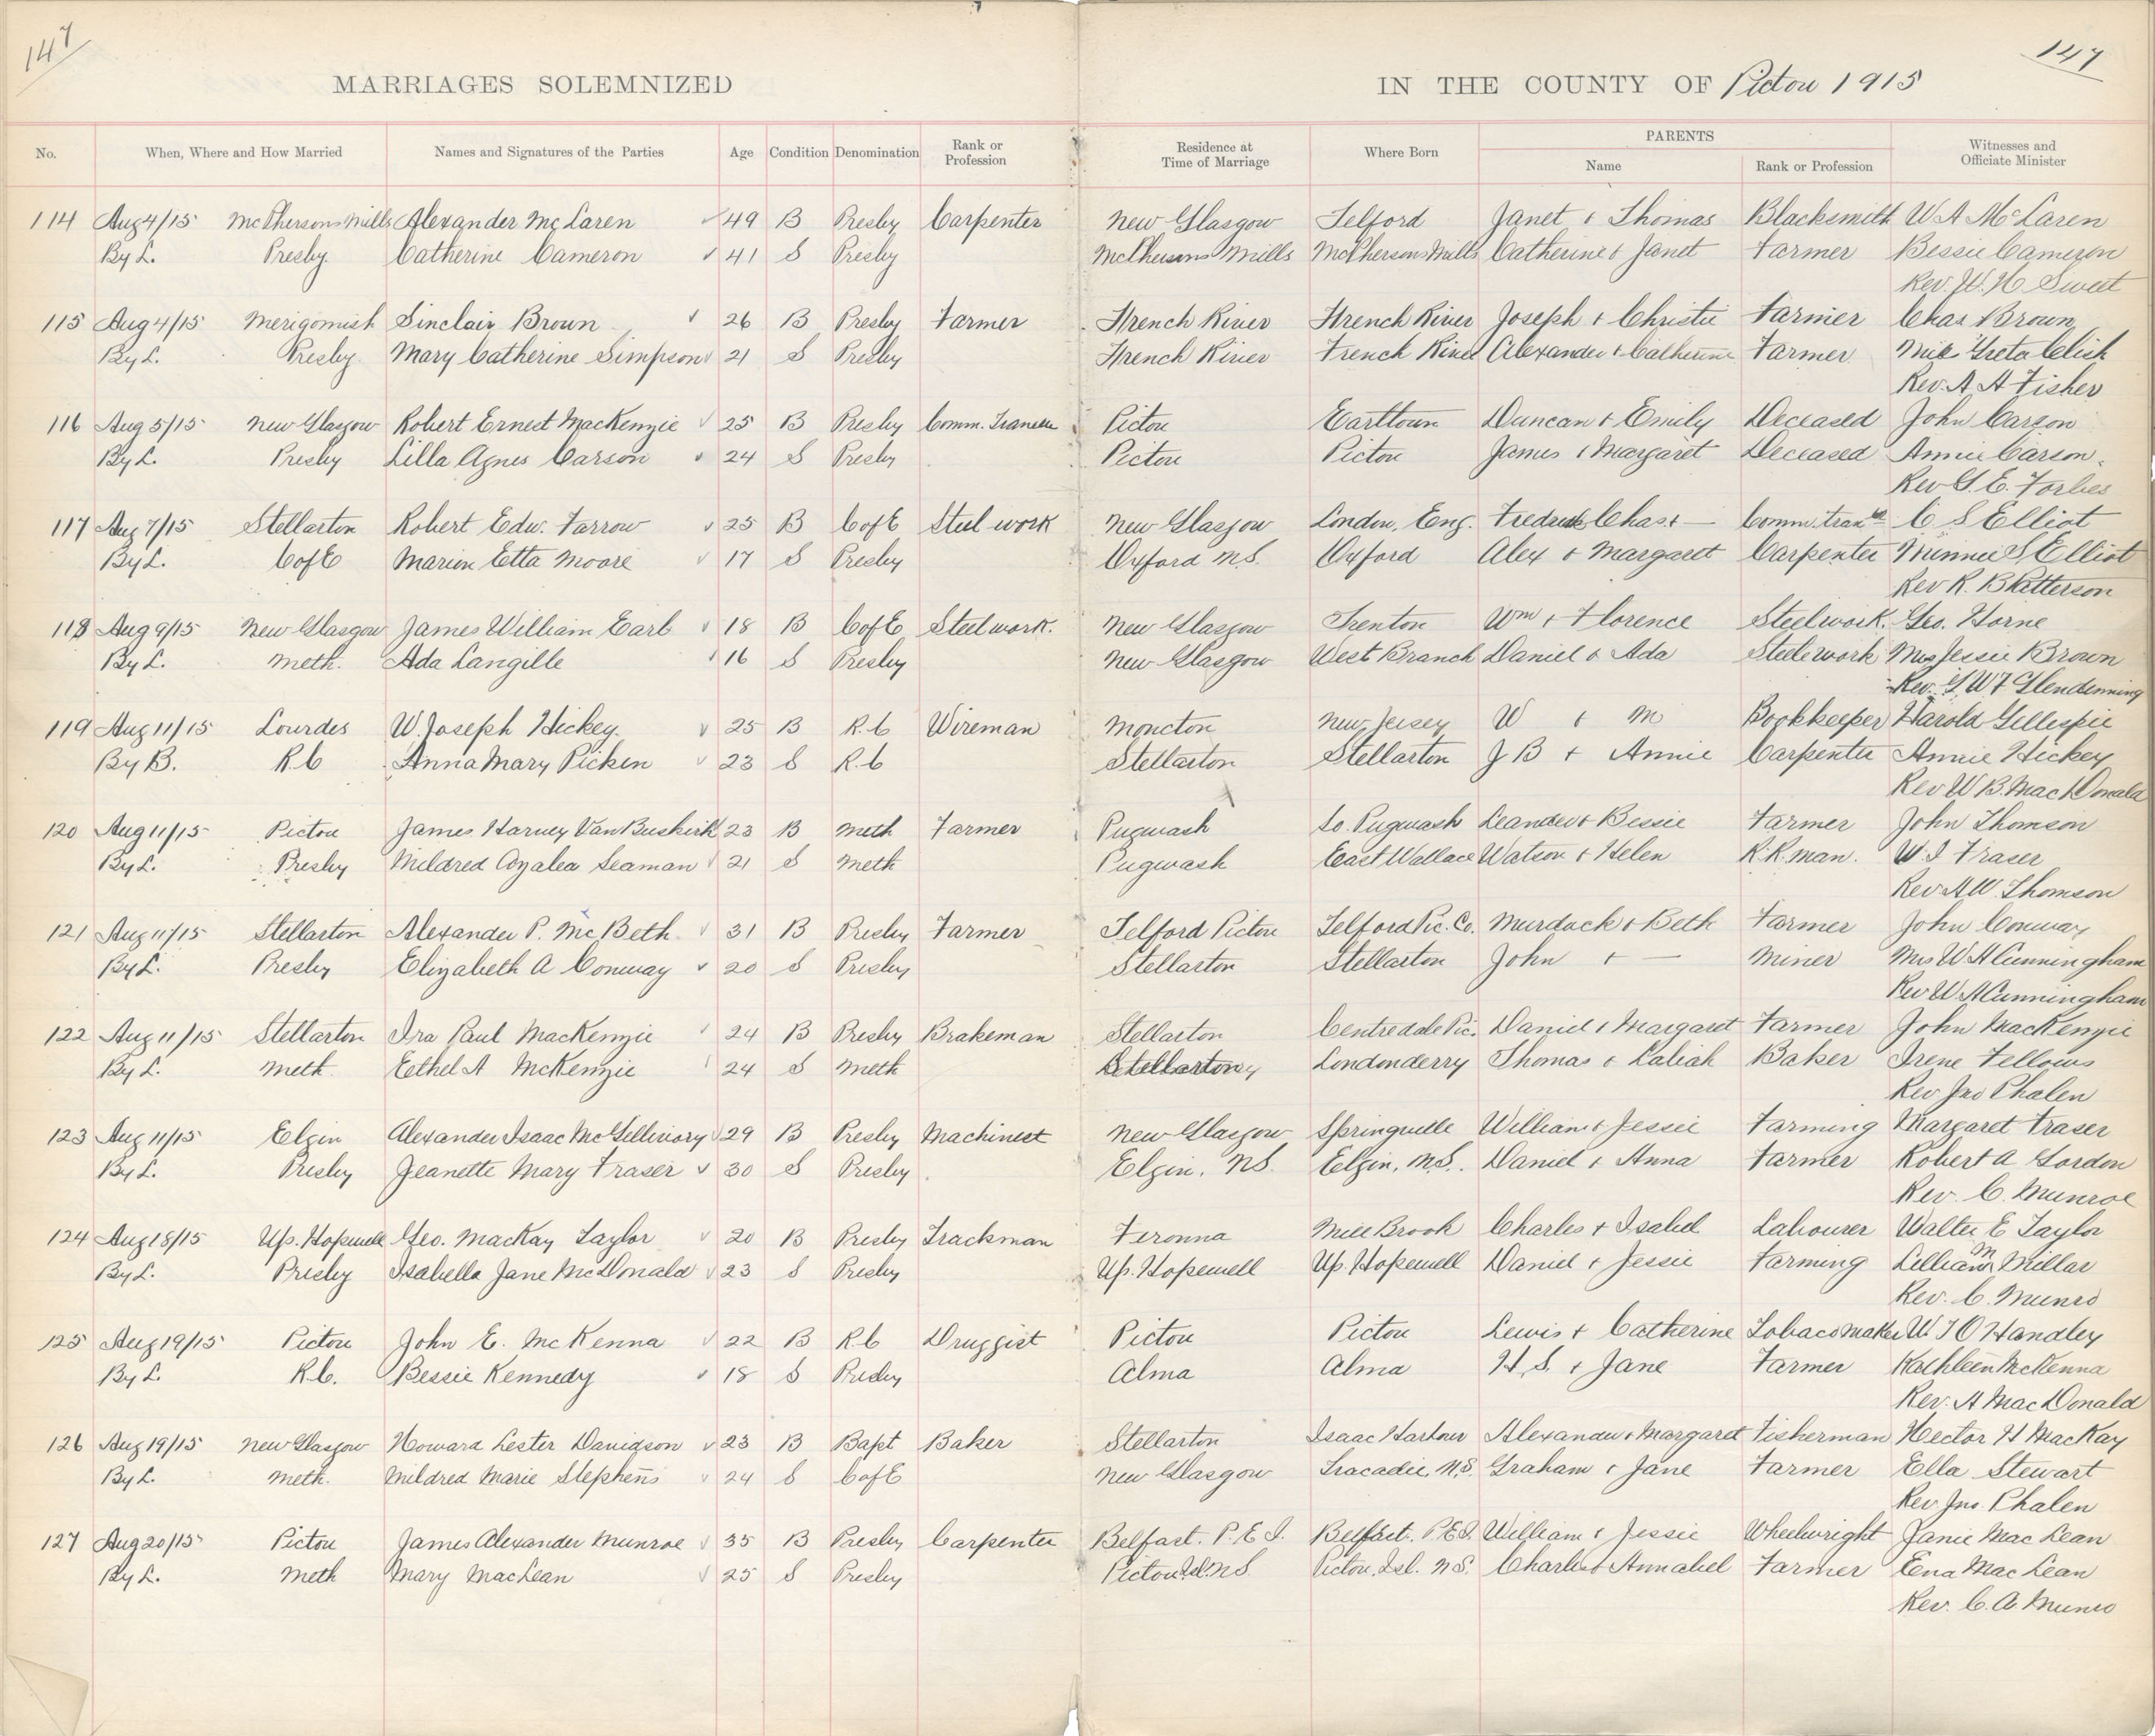 147
147
MARRIAGES SOLEMNIZED IN THE COUNTY OF Pictou 1915
No. When, Where and How Married Names and Signatures of the Parties Age Condition Denomination Rank or Profession Residence at Time of Marriage Where Born PARENTS Name Rank or Profession Witnesses and Officiate Minister
114 Aug 4/15 McPhersons Mills Alexander McLaren 49 B Presby Carpenter New Glasgow Telford Janet & Thomas Blacksmith W A McLaren
By L. Presby. Catherine Cameron 41 S Presby McPhersons Mills McPhersons Mills Catherine & Janet Farmer Bessie Cameron
Rev. W. H Sweet
115 Aug 4/15 Merigomish Sinclair Brown 26 B Presby Farmer French River French River Joseph & Christie Farmer Chas Brown
By L. Presby. Mary Catherine Simpson 21 S Presby French River French River Alexander & Catherine Farmer Greta
Rev. A A Fisher
116 Aug 5/15 New Glasgow Robert Ernest MacKenzie 25 B Presby Comm. Pictou Earltown Duncan & Emily Deceased John Carson
By L. Presby Lilla Agnes Carson 24 S Presby Pictou Pictou James & Margaret Deceased Annie Carson.
Rev G. E. Forbes
117 Aug 7/15 Stellarton Robert Edw. Farrow 25 B C of E Steel work New Glasgow London, Eng. Fredrick Chas & — C S Elliot
By L. C of E Marion Etta Moore 17 S Presby Oxford N.S. Oxford Alex & Margaret Carpenter Minnie S Elliot
Rev R. B Patterson
118 Aug 9/15 New Glasgow James William Earl 18 B C of E Steel work. New Glasgow Trenton Wm & Florence Steelwork. Geo. Horne
By L. Meth. Ada Langille 16 S Presby New Glasgow West Branch Daniel & Ada Steelework Mrs Jessie Brown
Rev. G. W F Glendenning
119 Aug 11/15 Lourdes W. Joseph Hickey. 25 B R.C Wireman Moncton New Jersey W & M Bookkeeper Harold Gillespie
By B. R.C Anna Mary Picken 23 S R.C Stellarton Stellarton J B & Annie Carpenter Annie Hickey
Rev W B. MacDonald
120 Aug 11/15 Pictou James Harvey VanBuskirk 23 B Meth Farmer Pugwash So. Pugwash Leander & Bessie Farmer John Thomson
By L. Presby Mildred Azalea Seaman 21 S Meth Pugwash East Wallace Watson & Helen R.R. man. W. I Fraser
Rev. A W. Thomson
121 Aug 11/15 Stellarton Alexander P. McBeth 31 B Presby Farmer Telford Pictou Telford Pic. Co. Murdock & Beth Farmer John Conway
By L. Presby Elizabeth A Conway 20 S Presby Stellarton Stellarton John & — Miner Mrs W A Cunningham
Rev W A Cunningham
122 Aug 11/15 Stellarton Ira Paul MacKenzie 24 B Presby Brakeman Stellarton Centredale Pic. Daniel & Margaret Farmer John MacKenzie
By L. Meth Eethel A McKenzie 24 S Meth Stellarton Londonderry Thomas & Baker Irene Fellows
Rev Jno Phalen
123 Aug 11/15 Elgin Alexander Isaac McGillivory 29 B Presby Machinest New Glasgow Springville William & Jessie Farming Margaret Fraser
By L. Presby Jeanette Mary Fraser 30 S Presby Elgin, N.S. Eelgin, N.S. Daniel & Anna Farmer Robert A Gordon
Rev. C. Munroe
124 Aug 18/15 Up. Hopewell Geo. MacKay Taylor 20 B Presby Trackman Ferona Mill Brook Charles & Isabel Labourer Walter E Taylor
By L. Presby Isabella Jane McDonald 23 S Presby Up. Hopewell Up. Hopewell Daniel & Jessie Farming Lillian M Millar
Rev. C. Munro
125 Aug 19/15 Pictou John E. McKenna 22 B R.C Druggist Pictou Pictou Lewis & Catherine Tobaco maker W. J O'Handley
By L. R.C. Bessie Kennedy 18 S Presby Alma Alma H. S. & Jane Farmer Kathleen McKenna
Rev. A MacDonald
126 Aug 19/15 New Glasgow Howard Lester Davidson 23 B Bapt Baker Stellarton Isaac Harbour Alexander & Margaret Fisherman Hector H MacKay
By L. Meth. Mildred Marie Stephens 24 S C of E New Glasgow Tracadie, N.S. Graham & Jane Farmer Ella Stewart
Rev Jno. Phalen
127 Aug 20/15 Pictou James Alexander Munroe 35 B Presby Carpenter Belfast. P. E I. Belfast. P.E.I. William & Jessie Wheelwright Janie MacLean
By L. Meth Mary MacLean 25 S Presby Pictou Isl. N S. Pictou Isl. N S. Charles & Annabel Farmer Eena MacLean
Rev. C. A. Munro